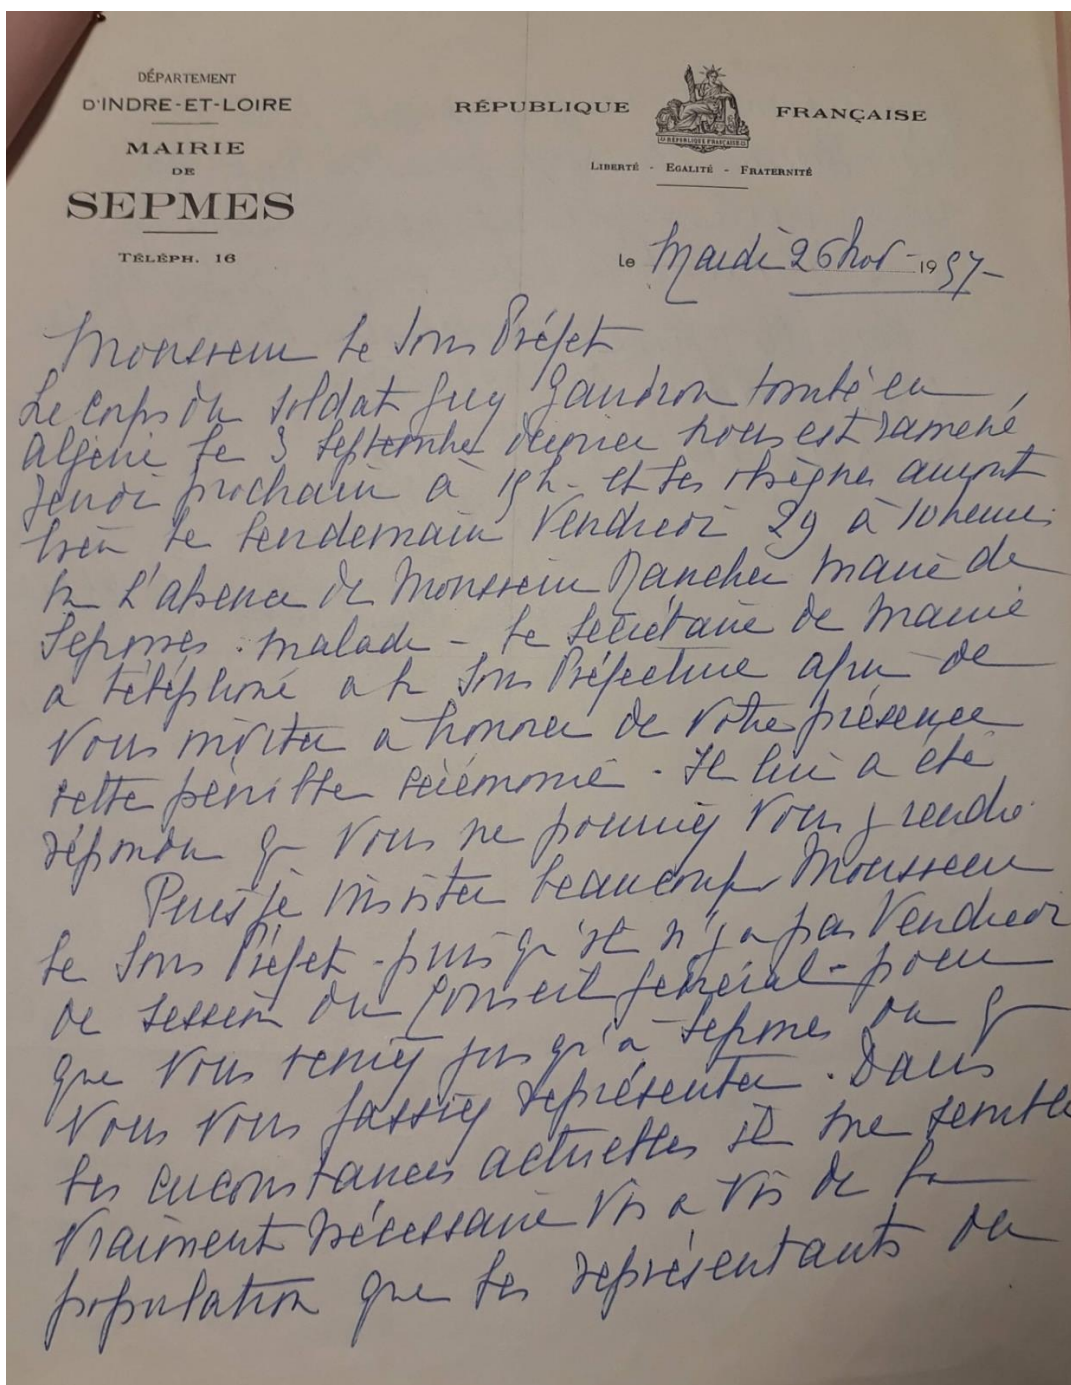 DÉPARTEMENT
D'INDRE-ET-LOIRE
MAIRIE
DE
SEPMES
TÉLÉPH. 16
RÉPUBLIQUE FRANÇAISE
LIBERTÉ - EGALITÉ - FRATERNITÉ
le Mardi 26 Nov - 1957 -
Monsieur le Sous Préfet
Le corps du soldat Guy Gaudron tombé en
Algérie le 3 septembre dernier nous est ramené
Jeudi prochain à 15h - et les obsèques auront
lieu le lendemain Vendredi 29 à 10 heures
En L'absence de Monsieur maire de
Sepmes malade - le secrétaire de mairie
a téléphoné a la Sous Préfecture afin de
vous inviter a honorer de votre présence
cette pénible cérémonie - Il lui a été
répondu q vous ne pourriez vous y rendre
Puis je insister beaucoup Monsieur
le Sous Préfet - puis qu'il n'y a pas Vendredi
de session du Conseil général - pour
que vous veniez jusqu'à Sepmes ou q
vous vous fassiez représenter. Dans
les circonstances actuelles il me semble
vraiment nécessaire vis a vis de la
population que les représentants du